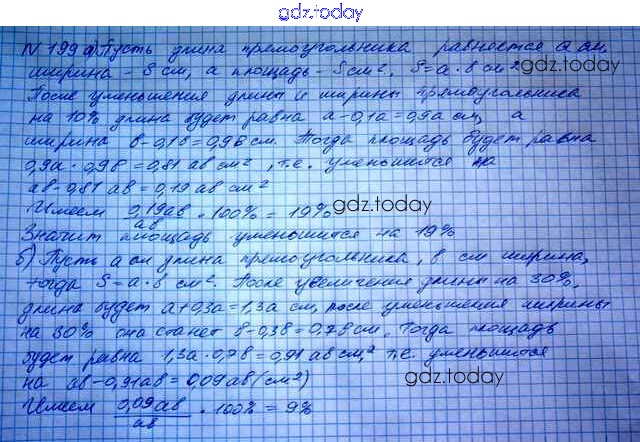 gdz.today
N 199 а) Пусть длина прямоугольника равняется а см,
ширина - в см, а площадь - S см², S=а·в см² gdz.today
После уменьшения длины и ширины прямоугольника
на 10% длина будет равна а-0,1а=0,9а см, а
ширина в-0,1в=0,9в см. Тогда площадь будет равна
0,9а·0,9в=0,81 ав см², т.е. уменьшится на
ав-0,81 ав=0,19 ав см²
Имеем 0,19ав/ав · 100% = 19% gdz.today
Значит площадь уменьшится на 19%
б) Пусть а см длина прямоугольника, в см ширина,
тогда S=а·в см². После увеличения длины на 30%,
длина будет а+0,3а=1,3а см, после уменьшения ширины
на 30% она станет в-0,3в=0,7в см. Тогда площадь
будет равна 1,3а·0,7в=0,91 ав см², т.е. уменьшится
на ав-0,91ав=0,09ав(см²) gdz.today
Имеем 0,09ав/ав · 100% = 9%